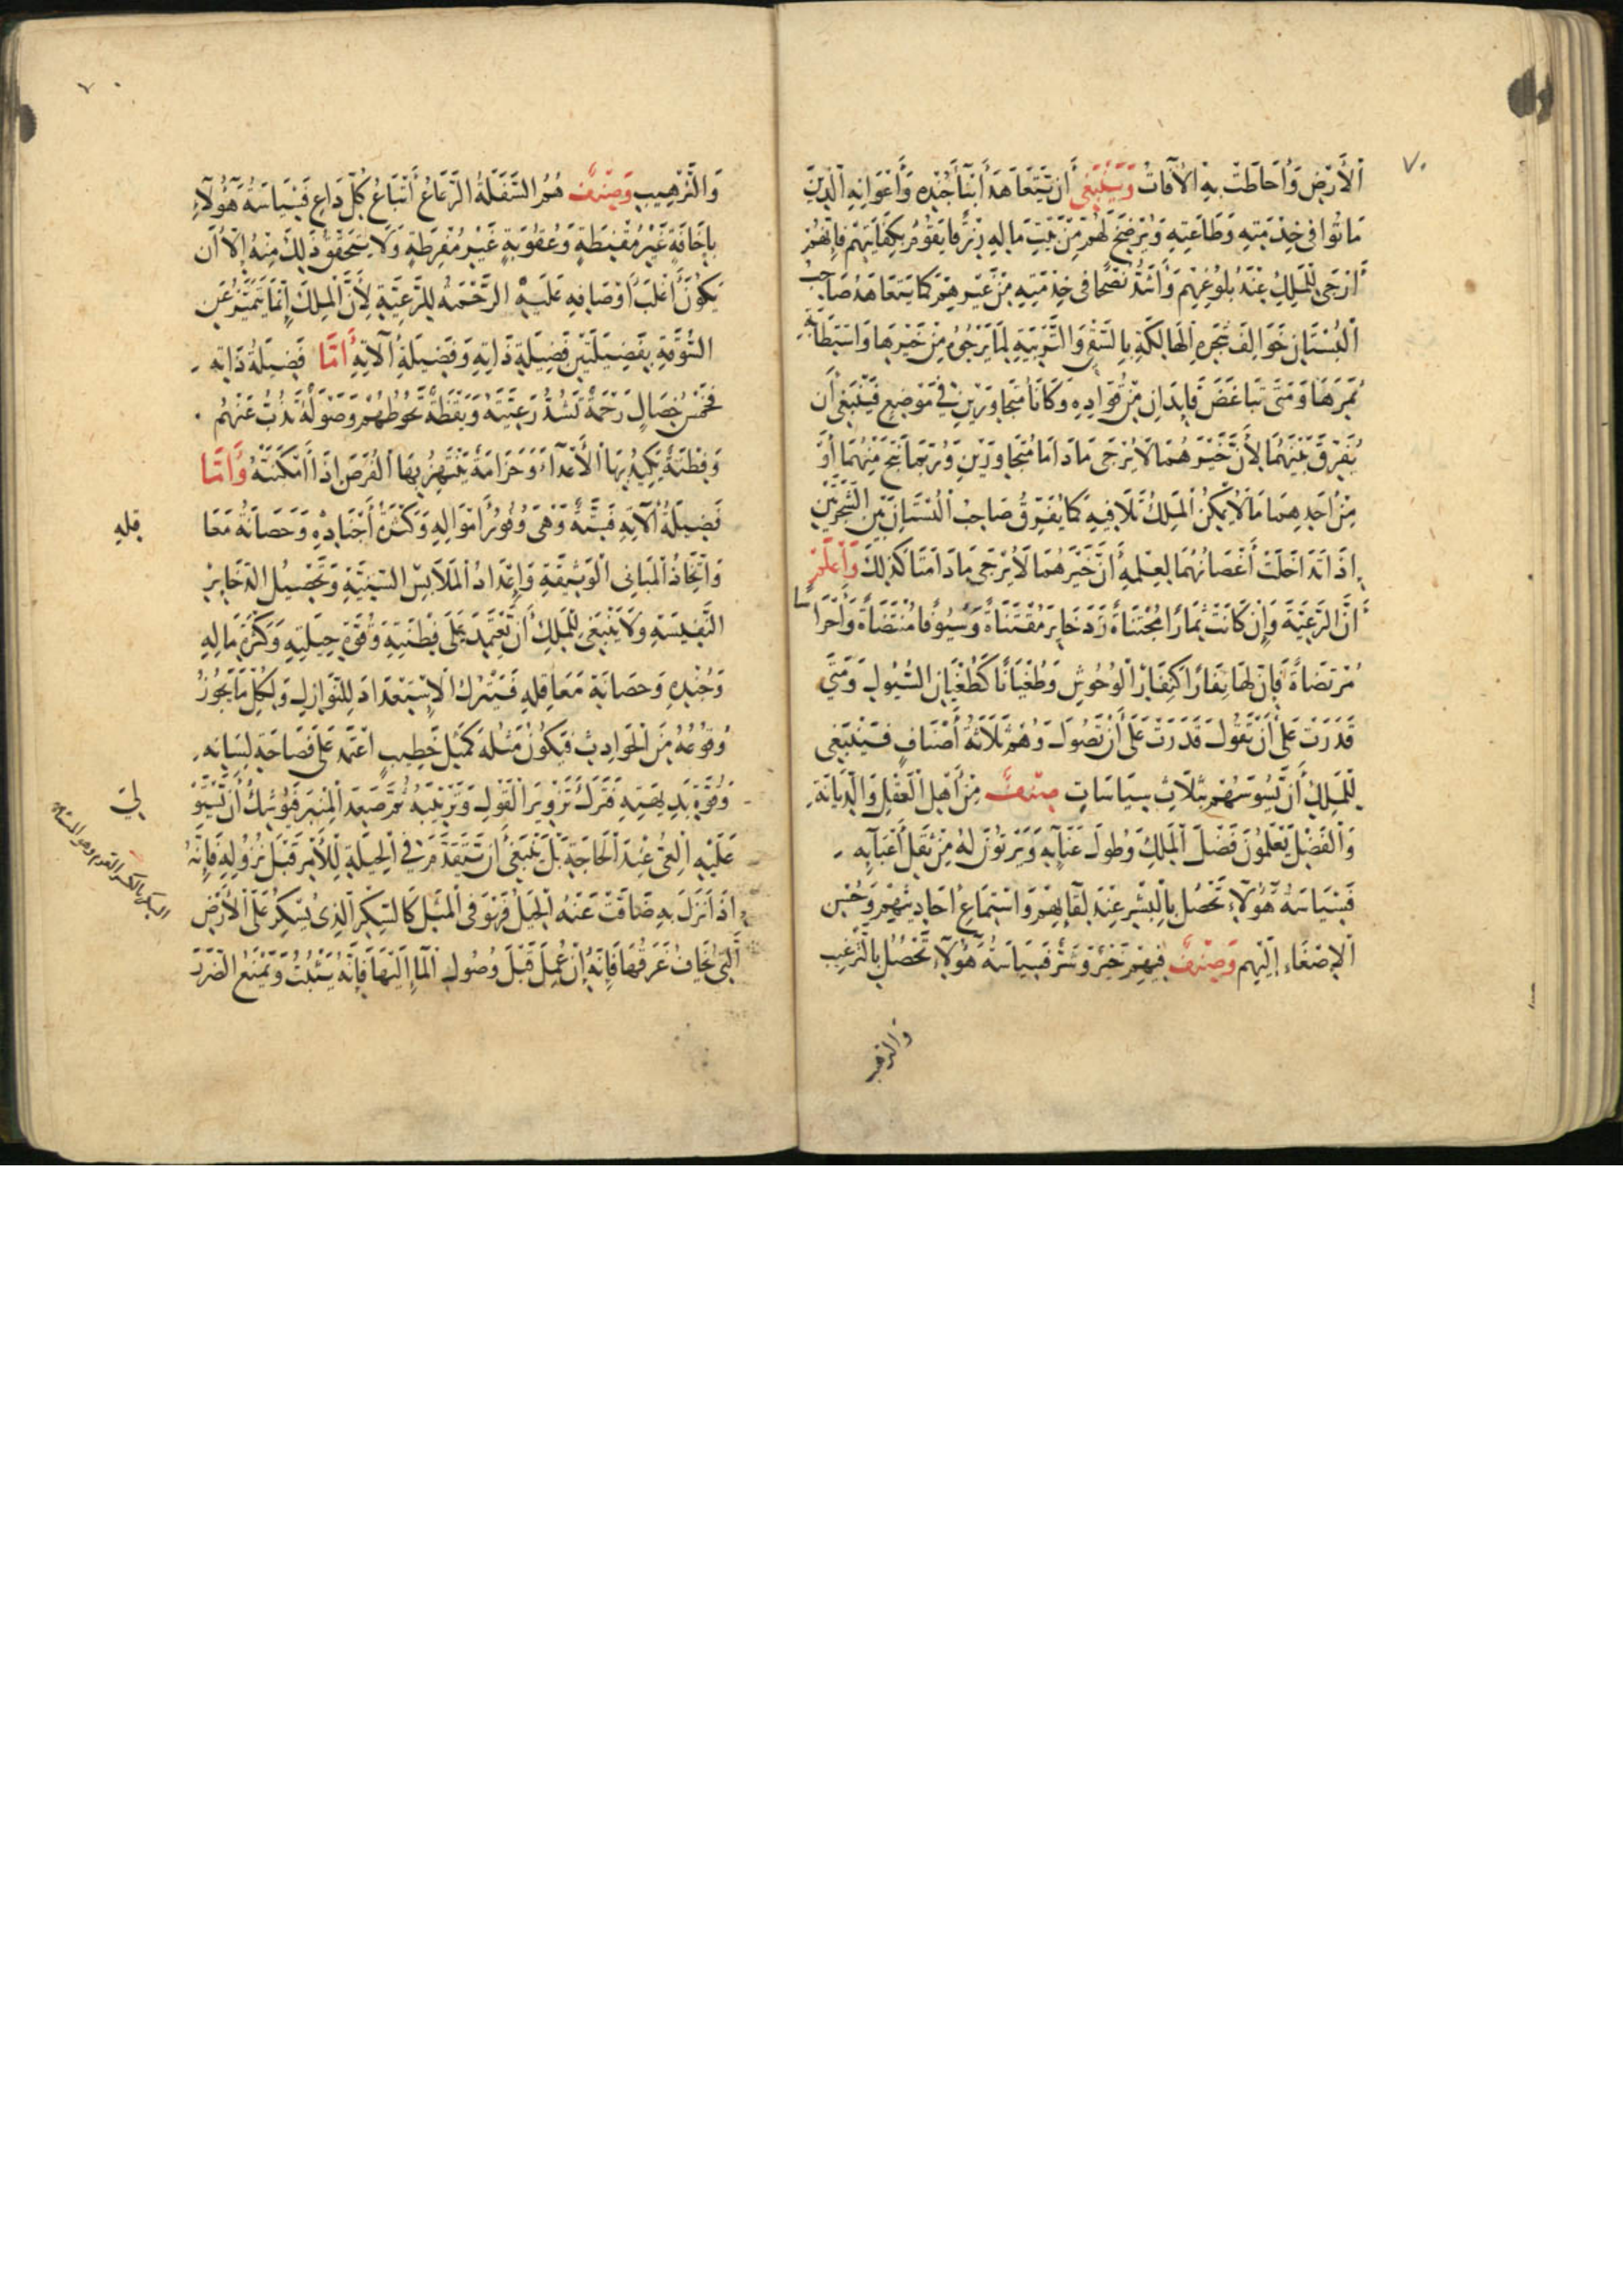 ٧٠
الْأَرْضِ وَأَحَاطَتْ بِهِ الْآفَاتُ وَيَنْبَغِي أَنْ يَتَعَاهَدَ أَبْنَاءَ جُنْدِهِ وَأَعْوَانِهِ الَّذِينَ
مَاتُوا فِي خِدْمَتِهِ وَطَاعَتِهِ وَيَرْضَخَ لَهُمْ مِنْ بَيْتِ مَالِهِ رِزْقًا يَقُومُ بِكِفَايَتِهِمْ فَإِنَّهُمْ
أَرْجَى لِلْمَلِكِ عِنْدَ بُلُوغِهِمْ وَأَشَدُّ نُصْحًا فِي خِدْمَتِهِ مِنْ غَيْرِهِمْ كَمَا يَتَعَاهَدُ صَاحِبُ
الْبُسْتَانِ خَوَالِفَ شَجَرِهِ الْهَالِكَةِ بِالسَّقْيِ وَالتَّرْبِيَةِ لِمَا يَرْجُو مِنْ خَيْرِهَا وَاسْتِطَابَةِ
ثَمَرِهَا وَمَتَى تَبَاغَضَ قَايِدَانِ مِنْ قُوَّادِهِ وَكَانَا مُتَجَاوِرَيْنِ فِي مَوْضِعٍ فَيَنْبَغِي أَنْ
يُفَرِّقَ بَيْنَهُمَا لِأَنَّ خَيْرَهُمَا لَا يُرْجَى مَا دَامَا مُتَجَاوِرَيْنِ وَرُبَّمَا نَتَجَ مِنْهُمَا أَوْ
مِنْ أَحَدِهِمَا مَا لَا يُمْكِنُ الْمَلِكَ تَلَافِيهِ كَمَا يُفَرِّقُ صَاحِبُ الْبُسْتَانِ بَيْنَ الشَّجَرَتَيْنِ
إِذَا تَدَاخَلَتْ أَغْصَانُهُمَا لِعِلْمِهِ أَنَّ خَيْرَهُمَا لَا يُرْجَى مَا دَامَتَا كَذَلِكَ وَاعْلَمْ
أَنَّ الرَّعِيَّةَ وَإِنْ كَانَتْ ثِمَارًا مُجْتَنَاةً وَذَخَايِرَ مُقْتَنَاةً وَسُيُوفًا مُنْتَضَاةً وَأَحْرَاسًا
مُرْتَضَاةً فَإِنَّ لَهَا نِفَارًا كَنِفَارِ الْوُحُوشِ وَطُغْيَانًا كَطُغْيَانِ السُّيُولِ وَمَتَى
قَدَرَتْ عَلَى أَنْ تَقُولَ قَدَرَتْ عَلَى أَنْ تَصُولَ وَهُمْ ثَلَاثَةُ أَصْنَافٍ فَيَنْبَغِي
لِلْمَلِكِ أَنْ يَسُوسَهُمْ بِثَلَاثِ سِيَاسَاتٍ صِنْفٌ مِنْ أَهْلِ الْعَقْلِ وَالدِّيَانَةِ
وَالْفَضْلِ يَعْلَمُونَ فَضْلَ الْمَلِكِ وَطُولَ عَنَائِهِ وَيَرْثُونَ لَهُ مِنْ ثِقَلِ أَعْبَائِهِ
فَسِيَاسَةُ هَؤُلَاءِ تَحْصُلُ بِالْبِشْرِ عِنْدَ لِقَائِهِمْ وَاسْتِمَاعِ أَحَادِيثِهِمْ وَحُسْنِ
الْإِصْغَاءِ إِلَيْهِمْ وَصِنْفٌ فِيهِمْ خَيْرٌ وَشَرٌّ فَسِيَاسَةُ هَؤُلَاءِ تَحْصُلُ بِالتَّرْغِيبِ
والترهيب
٧٠
وَالتَّرْهِيبِ وَصِنْفٌ هُمُ السَّفِلَةُ الرَّعَاعُ أَتْبَاعُ كُلِّ دَاعٍ فَسِيَاسَةُ هَؤُلَاءِ
بِإِخَافَةٍ غَيْرِ مُقْنِطَةٍ وَعُقُوبَةٍ غَيْرِ مُفْرِطَةٍ وَلَا يَتَحَقَّقُ ذَلِكَ مِنْهُ إِلَّا أَنْ
يَكُونَ أَغْلَبُ أَوْصَافِهِ عَلَيْهِ الرَّحْمَةُ لِلرَّعِيَّةِ لِأَنَّ الْمَلِكَ إِنَّمَا يَتَمَيَّزُ عَنِ
السُّوقَةِ بِفَضِيلَتَيْنِ فَضِيلَةِ ذَاتِهِ وَفَضِيلَةِ آلَاتِهِ أَمَّا فَضِيلَةُ ذَاتِهِ
فَخَمْسُ خِصَالٍ رَحْمَةٌ تَشُدُّ رَعِيَّتَهُ وَيَقَظَةٌ تَحُوطُهُمْ وَصَوْلَةٌ تَذُبُّ عَنْهُمْ
وَفِطْنَةٌ يَكِيدُ بِهَا الْأَعْدَاءَ وَحَزَامَةٌ يَنْتَهِزُ بِهَا الْفُرَصَ إِذَا أَمْكَنَتْهُ وَأَمَّا
فَضِيلَةُ آلَاتِهِ فَسِتَّةٌ وَهِيَ وُفُورُ أَمْوَالِهِ وَكَثْرَةُ أَجْنَادِهِ وَحَصَانَةُ مَعَا
قله
وَاتِّخَاذُ الْمَبَانِي الْوَثِيقَةِ وَإِعْدَادُ الْمَلَابِسِ السَّنِيَّةِ وَتَحْصِيلُ الذَّخَايِرِ
النَّفِيسَةِ وَلَا يَنْبَغِي لِلْمَلِكِ أَنْ يَعْتَمِدَ عَلَى فِطْنَتِهِ وَقُوَّةِ حِيلَتِهِ وَكَثْرَةِ مَالِهِ
وَجُنْدِهِ وَحَصَانَةِ مَعَاقِلِهِ فَيَتْرُكَ الِاسْتِعْدَادَ لِلنَّوَازِلِ وَلِكُلِّ مَا يَجُوزُ
وُقُوعُهُ مِنَ الْحَوَادِثِ فَيَكُونُ مَثَلُهُ كَمَثَلِ خَطِيبٍ اعْتَمَدَ عَلَى فَصَاحَةِ لِسَانِهِ
وَقُوَّةِ بَدِيهَتِهِ فَتَرَكَ تَزْوِيرَ الْقَوْلِ وَتَرْتِيبَهُ ثُمَّ صَعِدَ الْمِنْبَرَ فَيُوشِكُ أَنْ يَسْتَوْ
لي
عَلَيْهِ الْعِيُّ عِنْدَ الْحَاجَةِ بَلْ يَنْبَغِي أَنْ يَتَقَدَّمَ فِي الْحِيلَةِ لِلْأَمْرِ قَبْلَ نُزُولِهِ فَإِنَّهُ
إِذَا نَزَلَ بِهِ ضَاقَتْ عَنْهُ الْحِيَلُ فَهُوَ فِي الْمَثَلِ كَالسِّكْرِ الَّذِي يُسْكَرُ عَلَى الْأَرْضِ
الَّتِي يُخَافُ غَرَقُهَا فَإِنَّهُ إِنْ عُمِلَ قَبْلَ وُصُولِ الْمَاءِ إِلَيْهَا فَإِنَّهُ يَثْبُتُ وَيَمْنَعُ الضَّرَرَ
السكر بالكسر